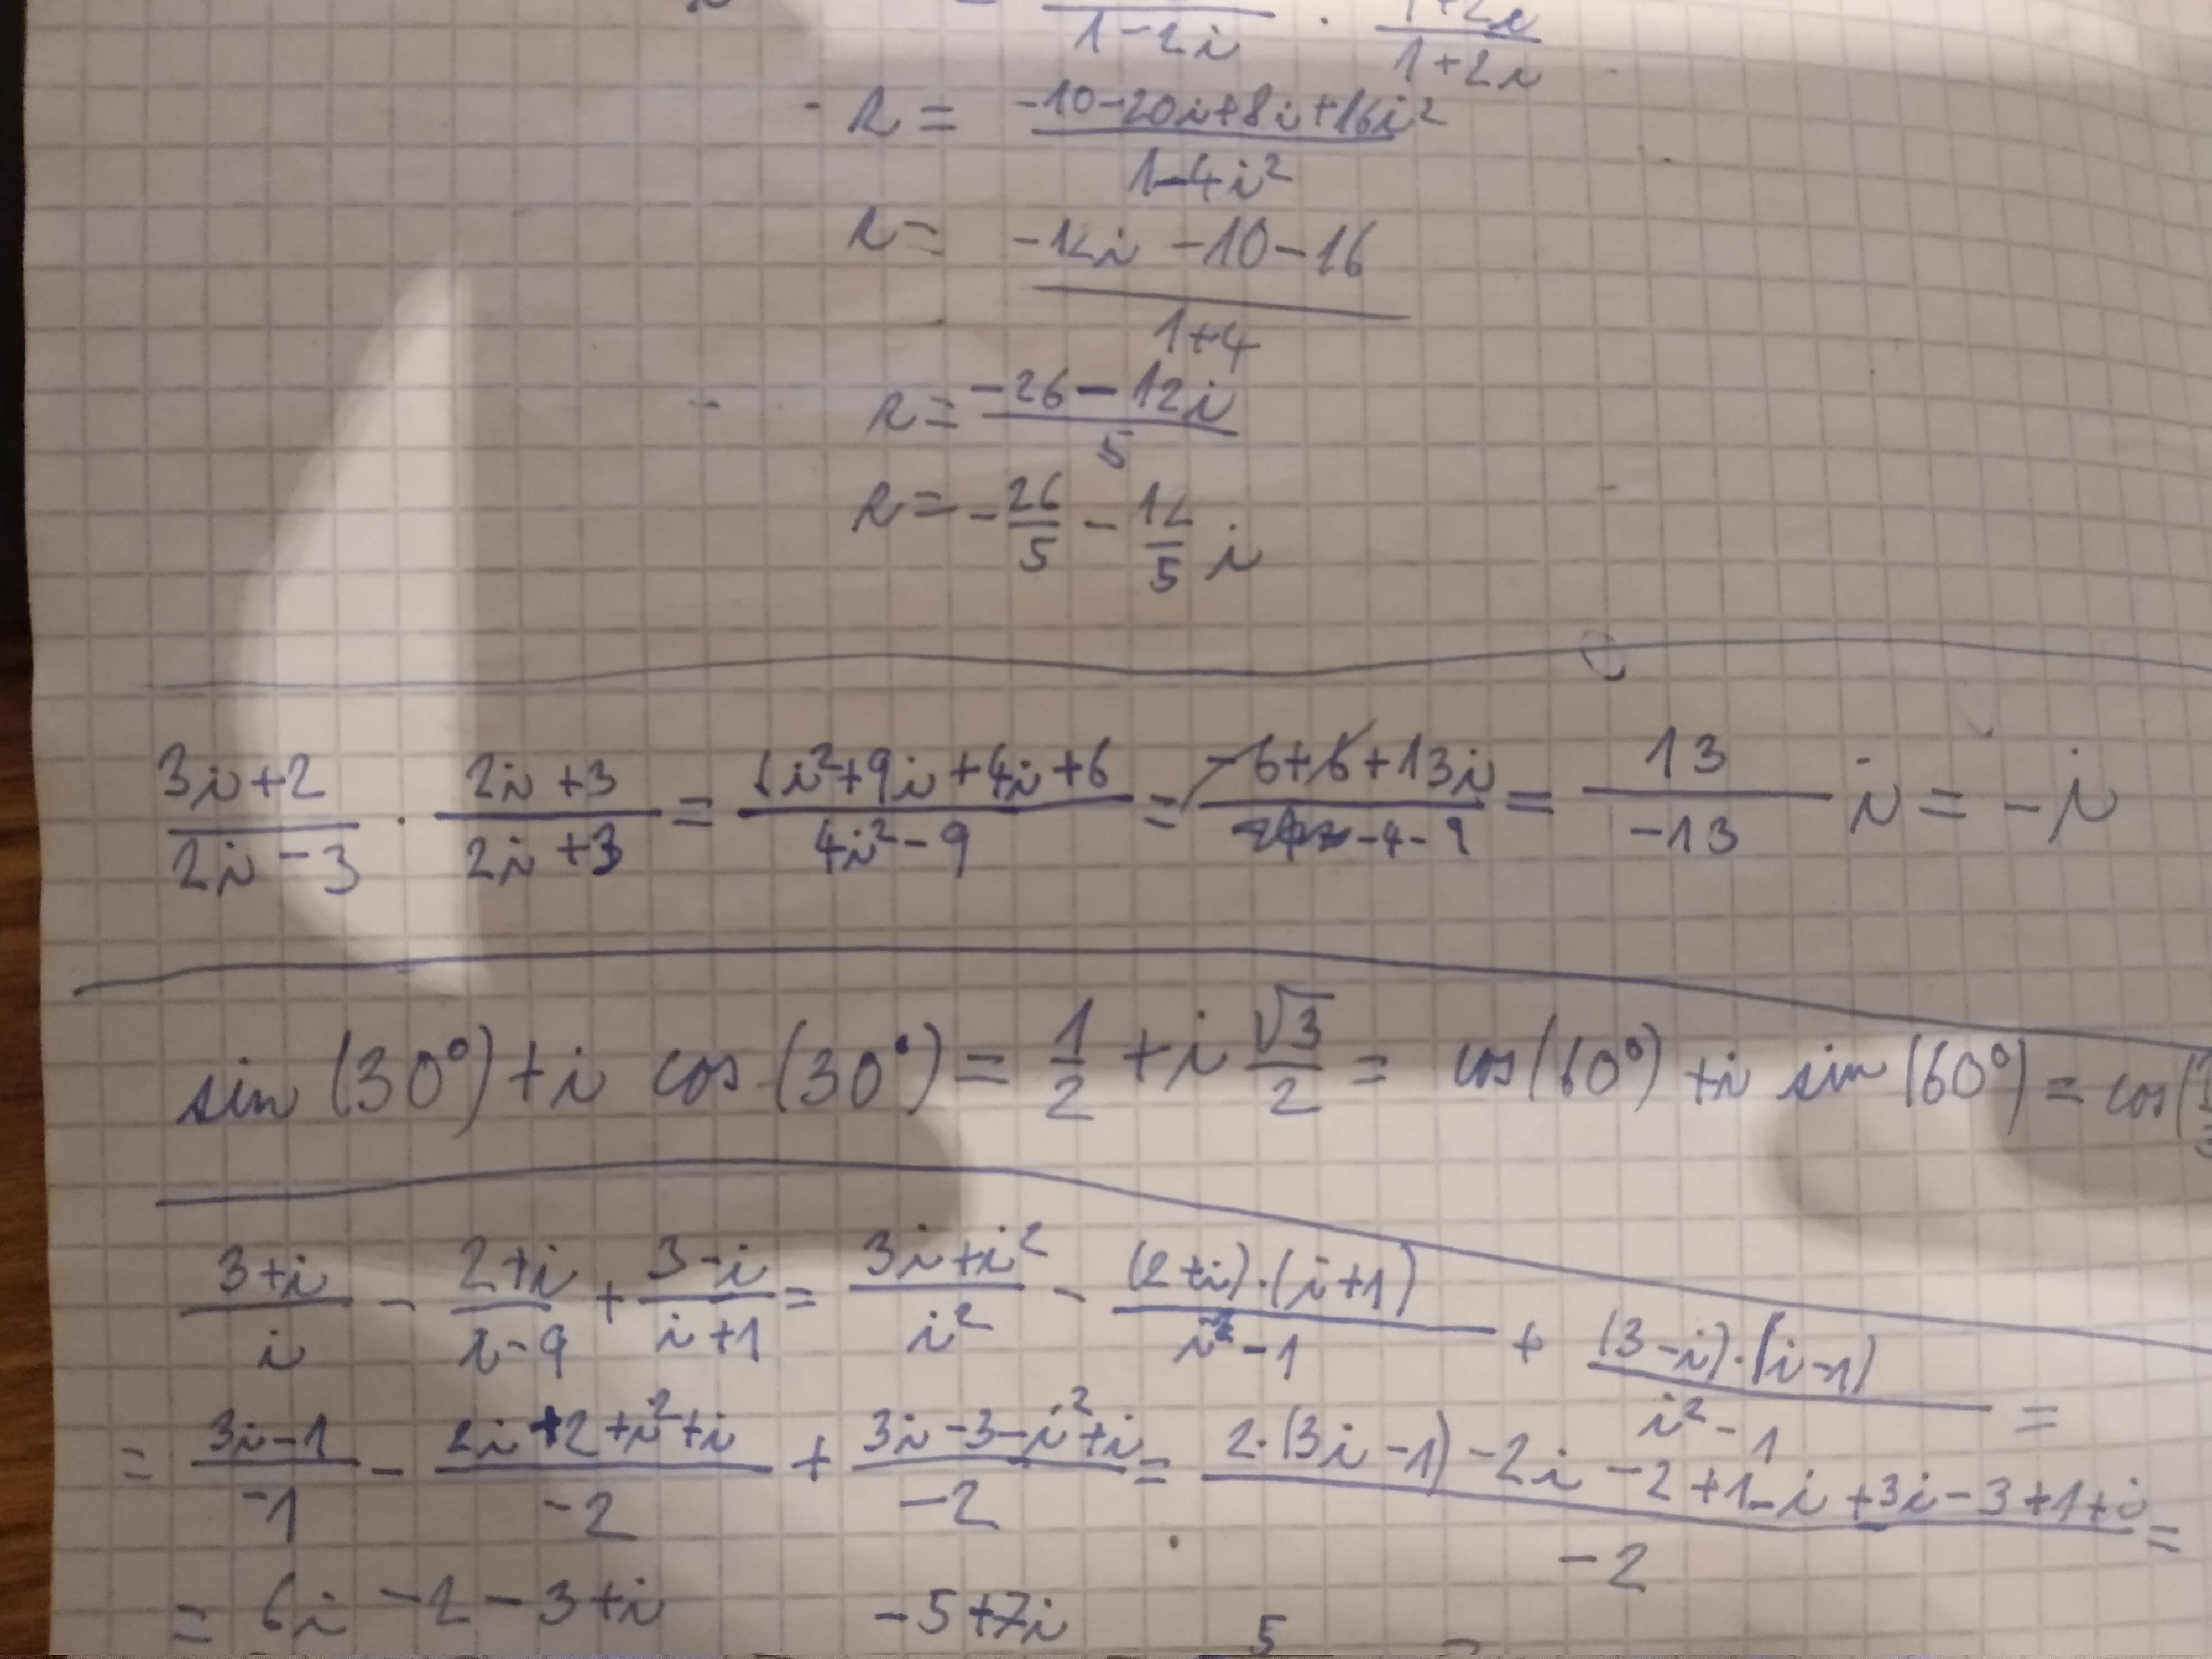 1-2i · 1+2i / 1+2i
R = (-10-20i+8i+16i²) / (1-4i²)
R = (-12i -10-16) / (1+4)
R = (-26-12i) / 5
R = -26/5 - 12/5 i
(3i+2)/(2i-3) · (2i+3)/(2i+3) = (6i²+9i+4i+6)/(4i²-9) = (-6+6+13i)/(-4-9) = 13/-13 i = -i
sin(30°)+i cos(30°) = 1/2 + i √3/2 = cos(60°) +i sin(60°) = cos(
(3+i)/i - (2+i)/(i-9) + (3-i)/(i+1) = (3i+i²)/i² - ((2+i)·(i+1))/(i²-1) + ((3-i)·(i-1))/(i²-1) =
= (3i-1)/-1 - (2i+2+i²+i)/-2 + (3i-3-i²+i)/-2 = (2·(3i-1)-2i-2+1-i+3i-3+1+i)/-2 =
= 6i-2-3+i -5+7i 5